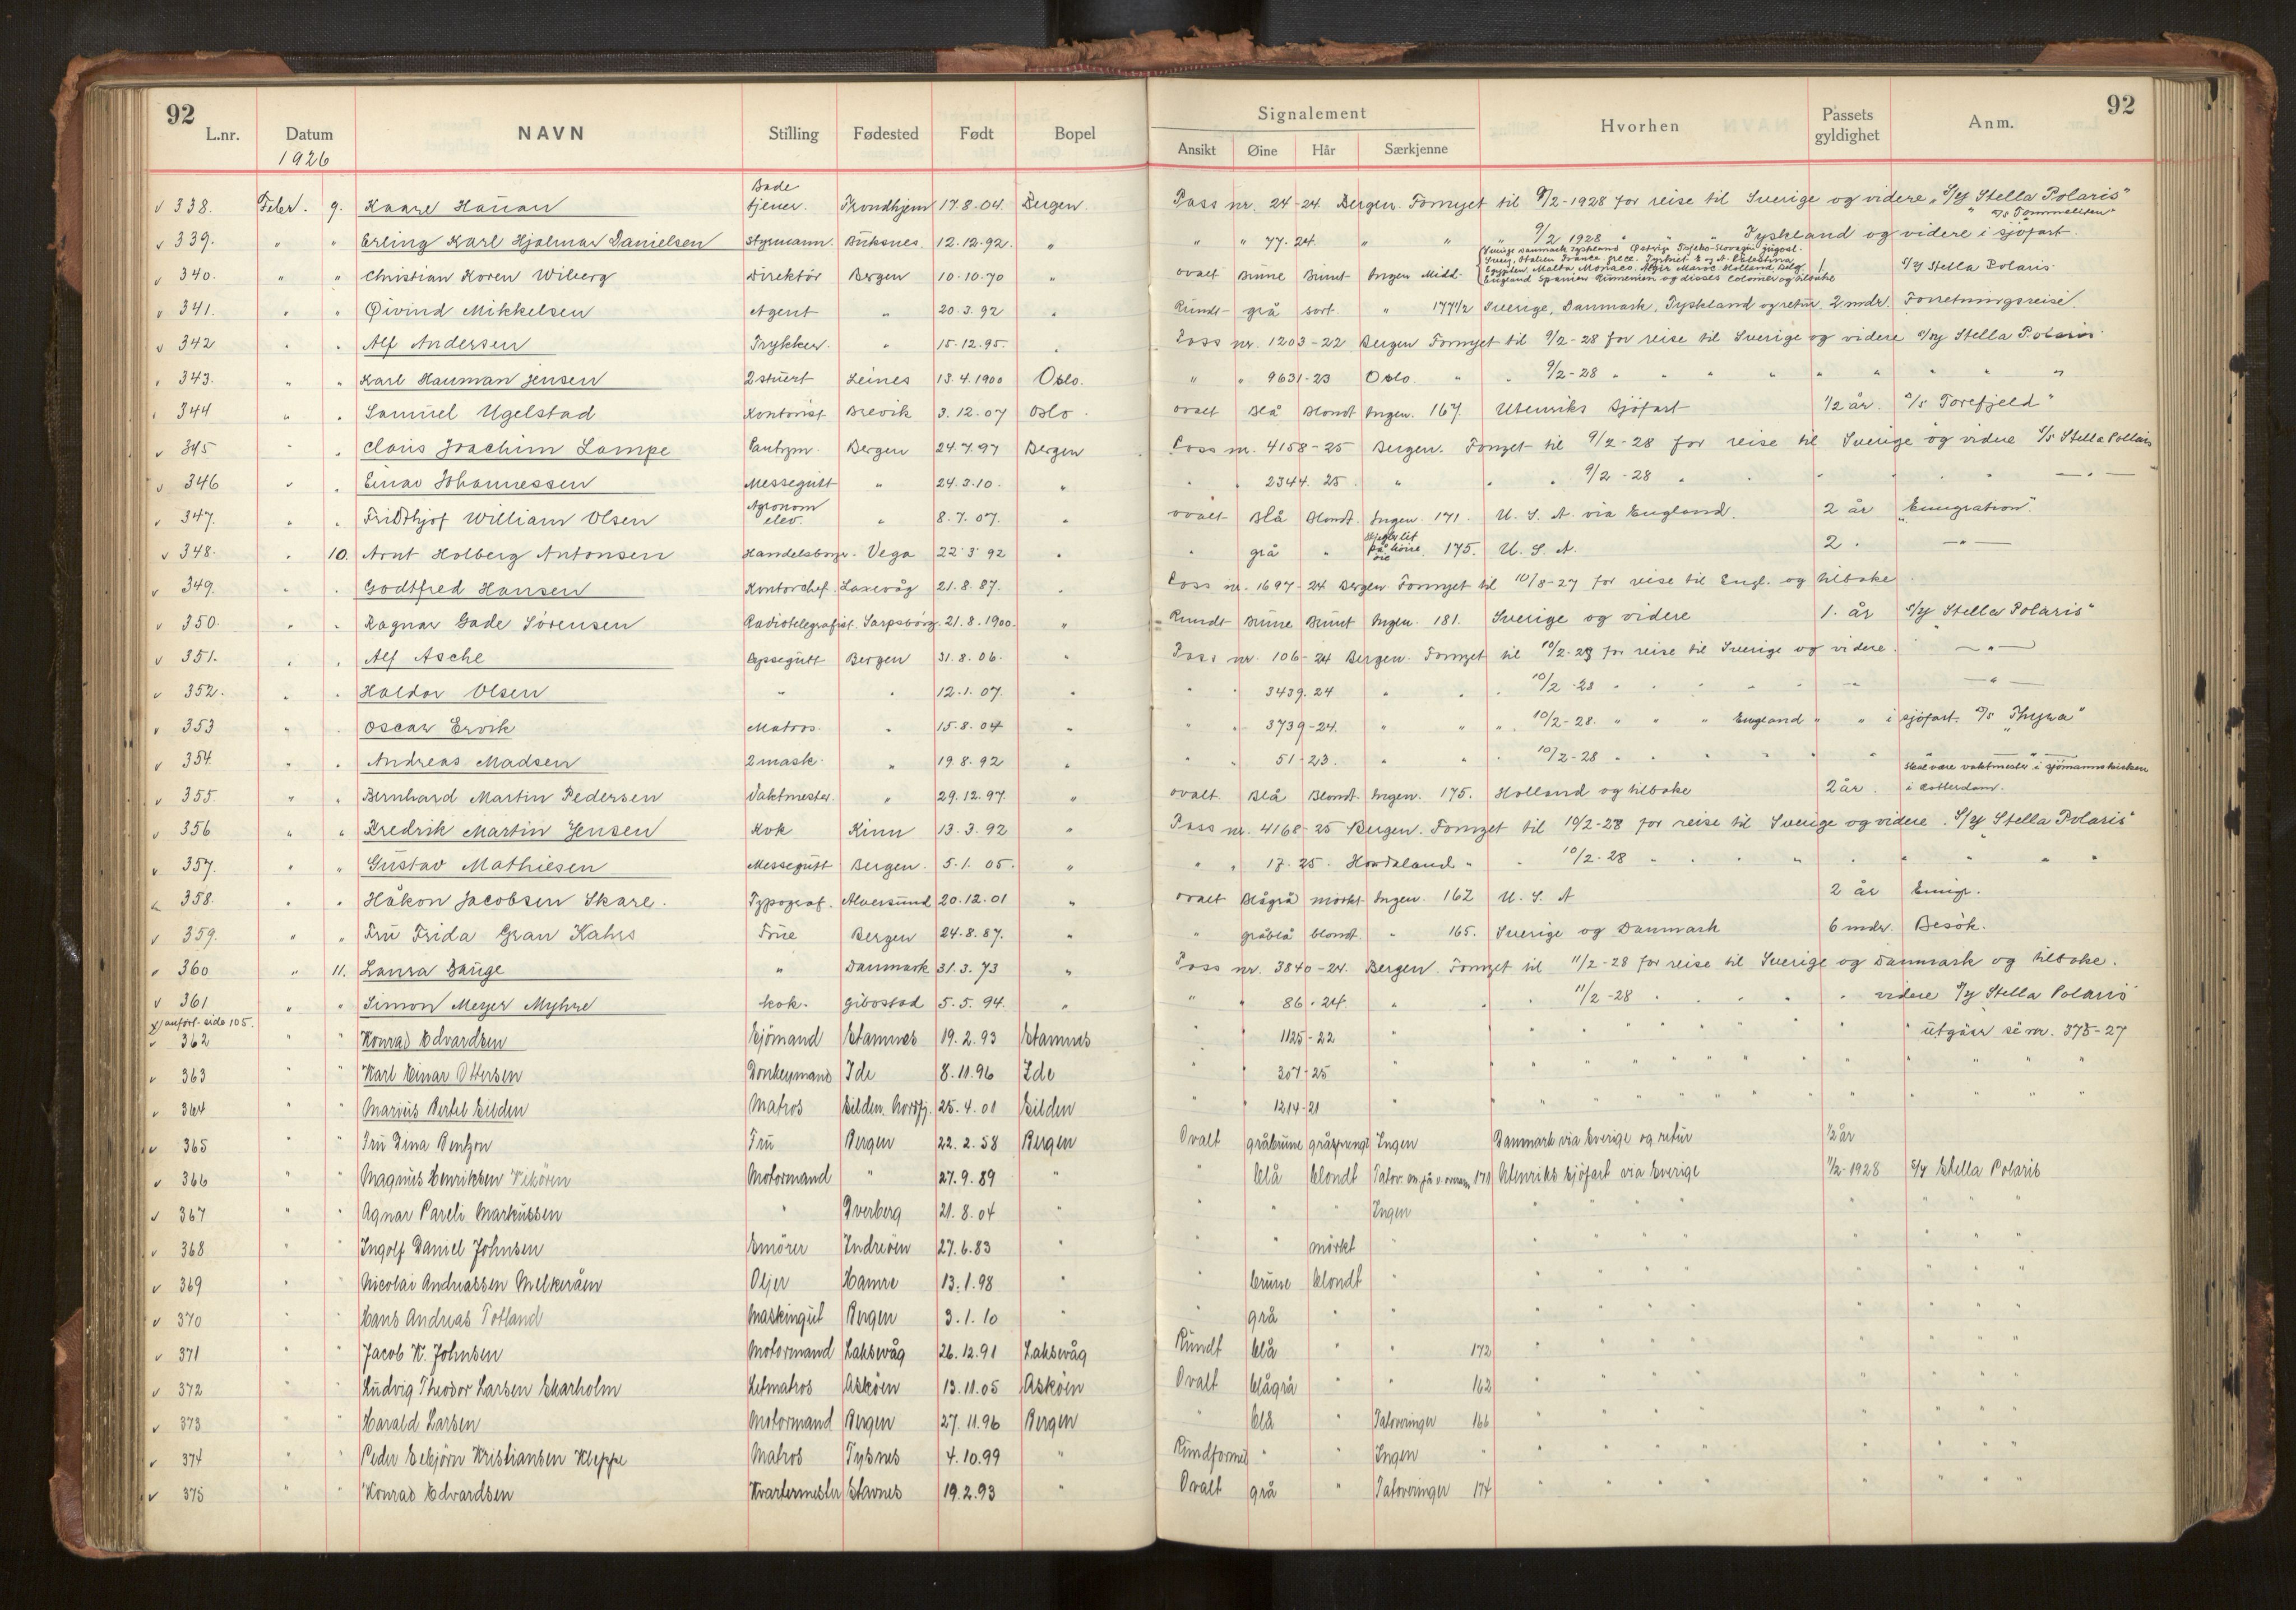 92
L.nr. Datum NAVN Stilling Fødested Født Bopel
1926
Signalement Hvorhen Passets gyldighet Anm. 92
Ansikt Øine Hår Særkjenne
v 338. Febr. 9. Kaare Hauan Bade tjener. Trondhjem 17.8.04. Bergen. Pass nr. 24-24 Bergen. Fornyet til 9/2-1928 for reise til Sverige og videre „S/Y Stella Polaris"
v 339. " " Erling Karl Hjalmar Danielsen Styrmann. Buksnes. 12.12.92. " " " 77-24. " " " 9/2 1928 " Tyskland og videre i sjøfart.
v 340. " " Christian Koren Wiberg Direktör Bergen 10.10.70 " ovalt Brune Brunt Ingen Midd. S/Y Stella Polaris
v 341. " " Øivind Mikkelsen Agent " 20.3.92 " Rundt grå sort. " 177 1/2 Sverige, Danmark, Tyskland og retur. 2 mndr. Forretningsreise
v 342 " " Alf Andersen Trykker. " 15.12.95. " Pass nr. 1203-22 Bergen Fornyet til 9/2-28 for reise til Sverige og videre S/Y Stella Polaris
v 343. " " Karl Hauman Jensen 2 stuert Leines 13.4.1900 Oslo. " " 9631-23 Oslo. " " 9/2-28 " " " " " " " " "
v 344 " " Samuel Ugelstad Kontorist Brevik 3.12.07 Oslo. ovalt Blå Blondt Ingen. 167. Utenriks Sjöfart 1/2 år. S/S Torefjeld"
v 345 " " Claus Joachim Lampe Pantrym. Bergen 24.7.97 Bergen Pass nr. 4158-25 Bergen. Fornyet til 9/2-28 for reise til Sverige og videre S/S Stella Pollaris
v 346 " " Einar Johannessen Messegutt " 24.3.10. " " " 2344. 25. " " " 9/2-28 " " " " — " —
v 347. " " Fridthjof William Olsen Agronom elev. " 8.7.07. " ovalt Blå Blondt. Ingen. 171. U. S. A. via England. 2 år „Emigration".
v 348. " 10. Arnt Holberg Antonsen Handelsborger. Vega 22.3.92 " " grå " på höire öie 175. U. S. A. 2. — " —
v 349. " " Godtfred Hansen Kontorchef. Laxevåg 21.8.87. " Pass nr. 1697-24 Bergen Fornyet til 10/8-27 for reise til Engl. og tilbake
v 350. " " Ragnar Gade Sörensen Radiotelegrafist. Sarpsborg. 21.8.1900. " Rundt Brune Brunt Ingen. 181. Sverige og videre 1. år S/Y Stella Polaris"
v 351. " " Alf Asche Bergen 31.8.06. " Pass nr. 106-24 Bergen. Fornyet til 10/2-28 for reise til Sverige og videre. — " —
v 352. " " Haldor Olsen " " 12.1.07. " " " 3439.24 " " " 10/2-28 " " " " " — " —
v 353 " " Oscar Ervik Matros. " 15.8.04 " " " 3739-24. " " " 10/2-28. " " " England " " i sjöfart. D/S Thyra"
v 354. " " Andreas Madsen 2 mask. " 19.8.92 " " " 51-23. " " " 10/2-28 " " " " " — " —
v 355. " " Bernhard Martin Pedersen Vaktmester. " 29.12.97. " ovalt Blå Blondt. Ingen. 175. Holland og tilbake 2 år. Skal være vaktmester i sjömannskirken i Rotterdam.
v 356 " " Fredrik Martin Jensen Kok Kinn 13.3.92 " Pass nr. 4168-25 Bergen. Fornyet til 10/2-28 for reise til Sverige og videre. S/Y Stella Polaris"
v 357. " " Gustav Mathiesen Messegutt Bergen. 5.1.05. " " " 17-25. Hordaland " " 10/2-28 " " " " " " " "
v 358. " " Håkon Jacobsen Skare. Typograf. Alversund 20.12.01 " ovalt Blågrå mörkt Ingen. 162 U. S. A 2 år Emigr.
v 359. " " Fru Frida Gran Kahrs Frue Bergen 24.8.87. " " gråblå blondt. " 165. Sverige og Danmark 6 mndr. Besök.
v 360 " 11. Laura Bauge " Danmark 31.3.73 " Pass nr. 3840-24. Bergen. Fornyet til 11/2-28 for reise til Sverige og Danmark og tilbake.
v 361 " " Simon Meyer Myhre Kok. Gibostad 5.5.94. " " " 86-24. " " " 11/2-28 " " " " " videre S/Y Stella Polaris
x) anfört side 105.
v 362 " " Konrad Edvardsen Sjömand Stamnes 19.2.93 Stamnes " " 1125-22 " " " " " " " " utgåar se nr. 375-27
v 363 " " Karl Einar Ottersen Donkeymand Ide 8.11.96 Ide " " 307-25 " " " " " " " " " "
v 364 " " Marius Bertel Eilden Matros Eilden. Nordfj. 25.4.01 Eilden " " 1214-21 " " " " " " " " " "
v 365 " " Fru Dina Bentzon Fru Bergen 22.2.58 Bergen Ovalt gråbrune gråsprengt Ingen Danmark via Sverige og retur 1/2 år
v 366 " " Magnus Henriksen Vikören Motormand " 27.9.89 " " blå blondt Tatov. 171 Utenriks sjöfart via Sverige 11/2-1928 S/Y Stella Polaris
v 367 " " Agnar Pareli Markussen " Dverberg 21.8.04 " " " " Ingen " " " " " " " "
v 368 " " Ingolf Daniel Johnsen Smörer Inderöen 27.6.83 " " " mörkt " " " " " " " " "
v 369 " " Nicolai Andreassen Melkeråen Oljer Hamre 13.1.98 " " brune blondt " " " " " " " " "
v 370 " " Hans Andreas Totland Maskingut Bergen 3.1.10 " " grå " " " " " " " " " "
v 371 " " Jacob K. Johnsen Motormand Laksevåg 26.12.91 Laksevåg Rundt blå " " 172 " " " " " " " "
v 372 " " Ludvig Theodor Larsen Skarholm Letmatros Asköen 13.11.05 Asköen Ovalt blågrå " " 162 " " " " " " " "
v 373 " " Harald Larsen Motormand Bergen 27.11.96 Bergen " blå " Tatoveringer 166 " " " " " " " "
v 374 " " Peder Esbjörn Kristiansen Kleppe Matros Tysnes 4.10.99 " Rundformet " " Ingen " " " " " " " " "
v 375 " " Konrad Edvardsen Kvartermester Stavnes 19.2.93 " Ovalt grå " Tatoveringer 174 " " " " " " " "